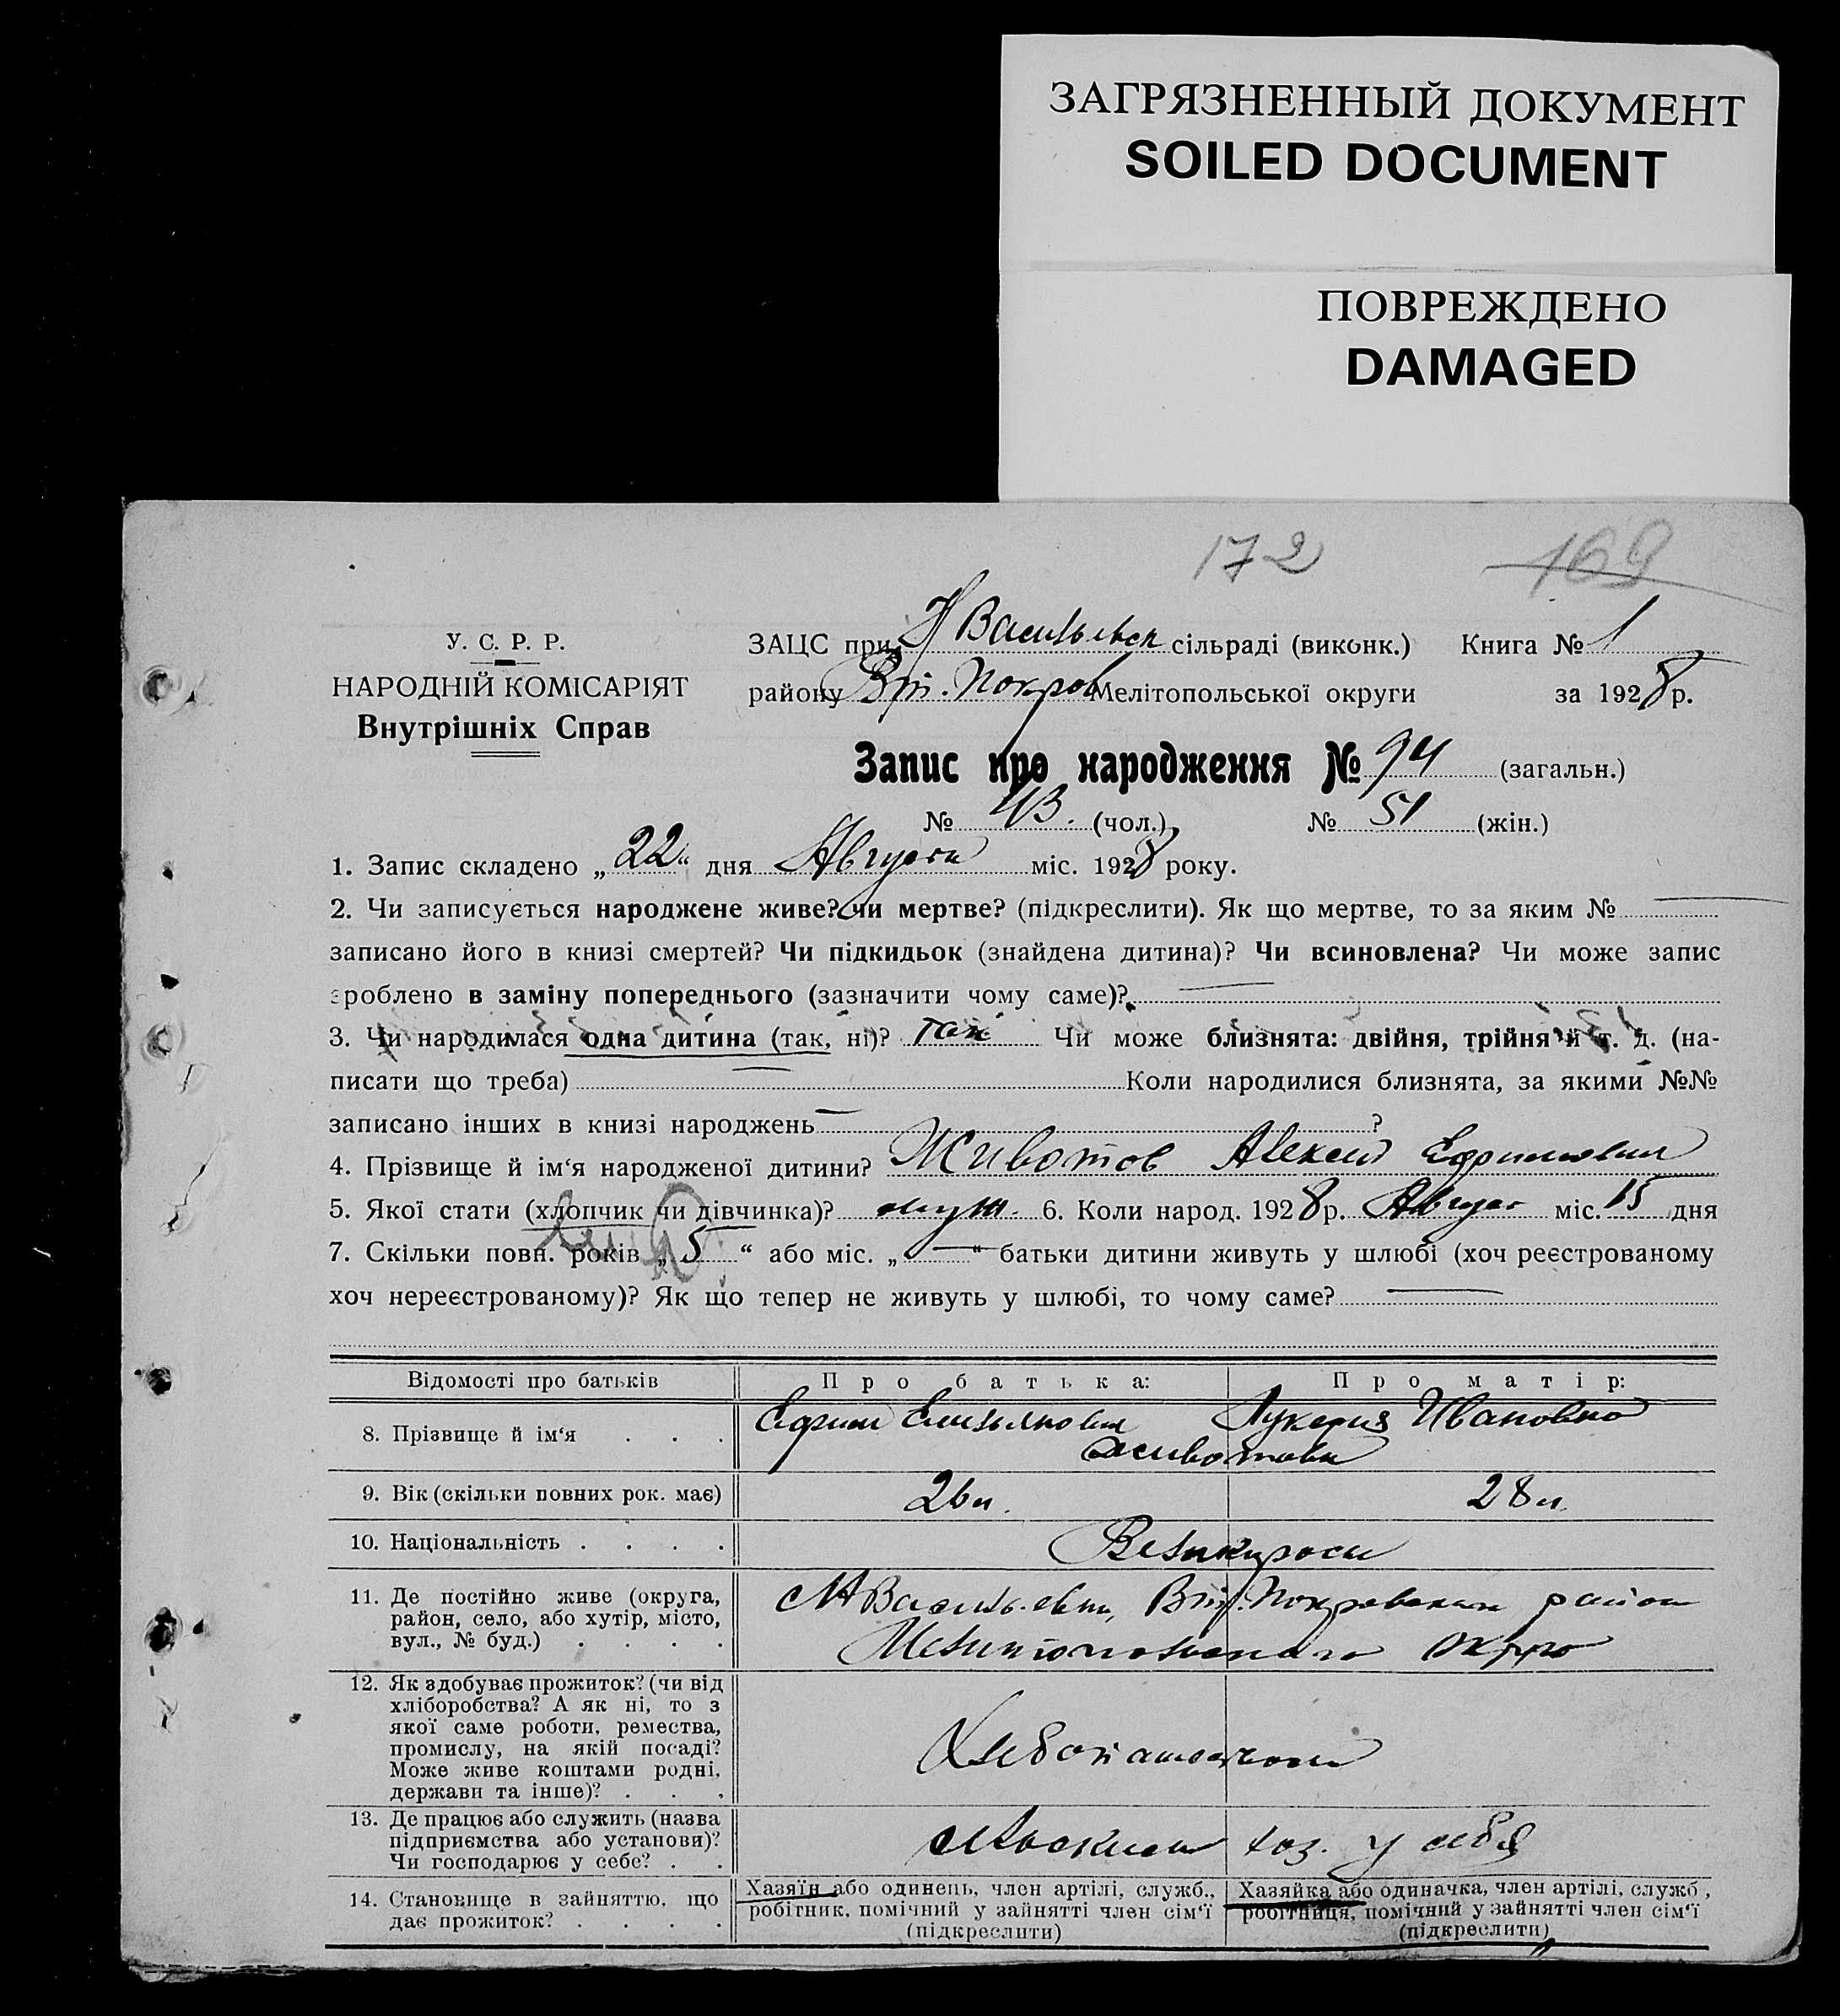 ЗАГРЯЗНЕННЫЙ ДОКУМЕНТ
SOILED DOCUMENT
ПОВРЕЖДЕНО
DAMAGED
172 169
У. С. Р. Р.
НАРОДНІЙ КОМІСАРІЯТ
Внутрішніх Справ
ЗАЦС при Н Васильевск сільраді (виконк.) Книга № 1
району Вт. Покров Мелітопольської округи за 1928 р.
Запис про народження № 94 (загальн.)
№ 43. (чол.) № 51 (жін.)
1. Запис складено „22“ дня Августа міс. 1928 року.
2. Чи записується народжене живе? чи мертве? (підкреслити). Як що мертве, то за яким №
записано його в книзі смертей? Чи підкидьок (знайдена дитина)? Чи всиновлена? Чи може запис
зроблено в заміну попереднього (зазначити чому саме)?
3. Чи народилася одна дитина (так, ні)? так Чи може близнята: двійня, трійня й т. д. (на-
писати що треба) Коли народилися близнята, за якими №№
записано інших в книзі народжень ?
4. Прізвище й ім‘я народженої дитини? Животов Алексей Ефимович
5. Якої стати (хлопчик чи дівчинка)? муж. 6. Коли народ. 1928 р. Август міс. 15 дня
7. Скільки повн. років „5“ або міс. „—“ батьки дитини живуть у шлюбі (хоч реєстрованому
хоч нереєстрованому)? Як що тепер не живуть у шлюбі, то чому саме?
Відомості про батьків Про батька: Про матір:
8. Прізвище й ім‘я . . . Ефим Емельянович Лукерия Ивановна
Животовы
9. Вік (скільки повних рок. має) 26 л. 28 л.
10. Національність . . . . Великороси
11. Де постійно живе (округа,
район, село, або хутір, місто,
вул., № буд.) . . . .
Васильевка, Вт. Покровского район
Мелитопольского округа
12. Як здобуває прожиток? (чи від
хліборобства? А як ні, то з
якої саме роботи, ремества,
промислу, на якій посаді?
Може живе коштами родні,
держави та інше)? . . .
Хлебопашеством
13. Де працює або служить (назва
підприємства або установи)?
Чи господарює у себе? . .
сельским хоз. у себя
14. Становище в зайняттю, що
дає прожиток? . . . .
Хазяїн або одинець, член артілі, служб.,
робітник, помічний у зайнятті член сім‘ї
(підкреслити)
Хазяйка або одиначка, член артілі, служб.,
робітниця, помічний у зайнятті член сім‘ї
(підкреслити)